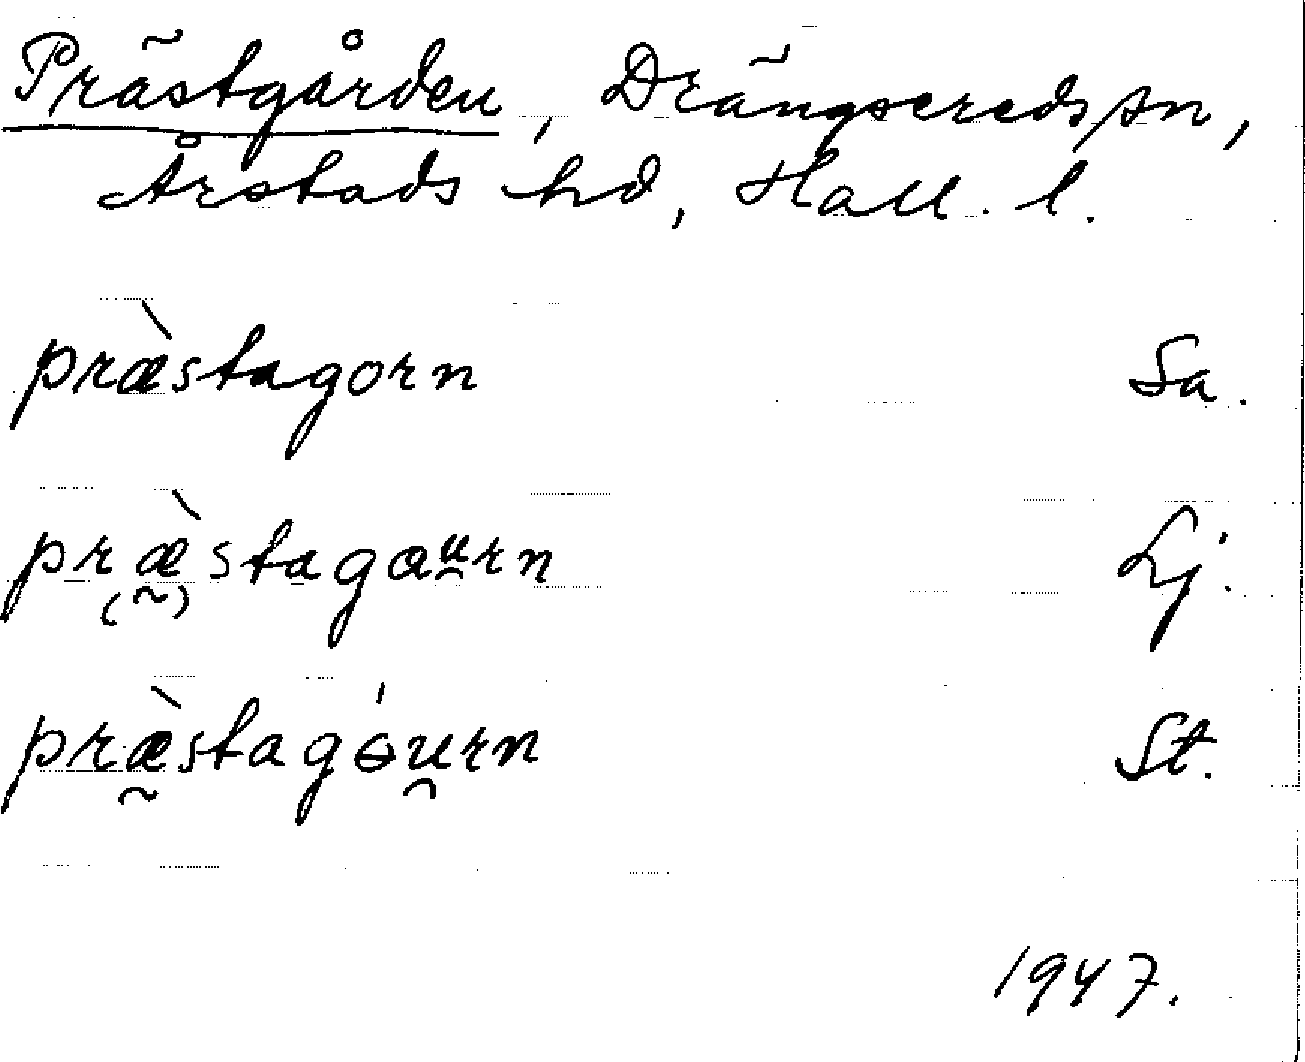 Prästgården, Drängsereds sn,
Årstads hd, Hall. l.
præ̀stagorn Sa.
præ̀(̰)stagɑu̯rn Lj.
præ̰̀stagɵ́u̯rn St.
1947.